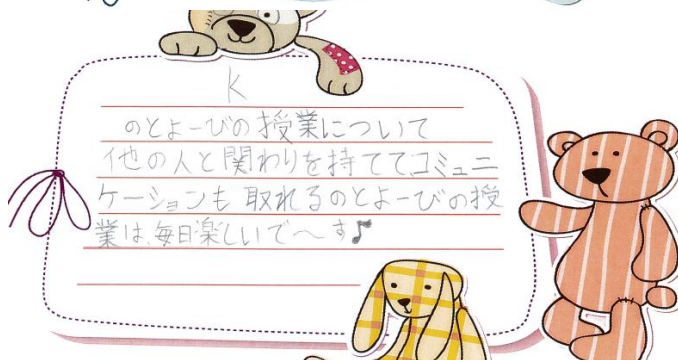 K
のとよーびの授業について
他の人と関わりを持ててコミュニ
ケーションも取れるのとよーびの授
業は、毎日楽しいで〜す♪